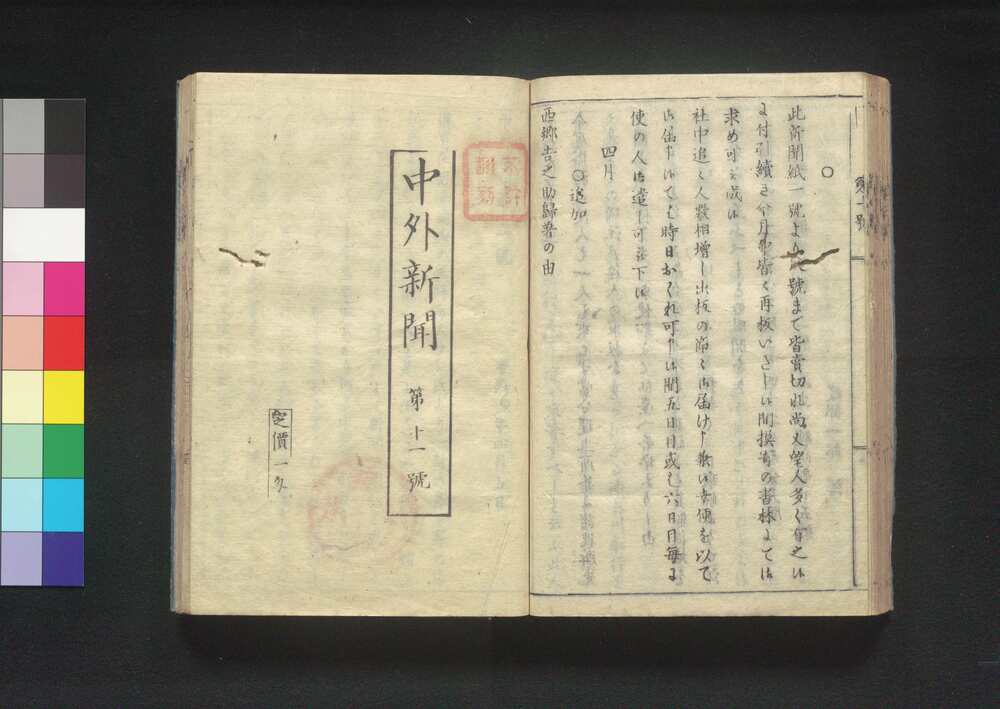 ○
此新聞紙一號より 號まで皆賣切此尚又望人多く有之候
に付引續き今月中皆く再板いたし候間換寄の書林にて御
求め可被成候
社中追々人數相増し出板の節々御届け申兼候幸便を以て
御届申候ても時日おくれ可申候間五日目或も六日目毎に
使の人御遣し可被下候
四月
○追加
西郷吉之助歸署の由
中外新聞 第十一號
定價一匁